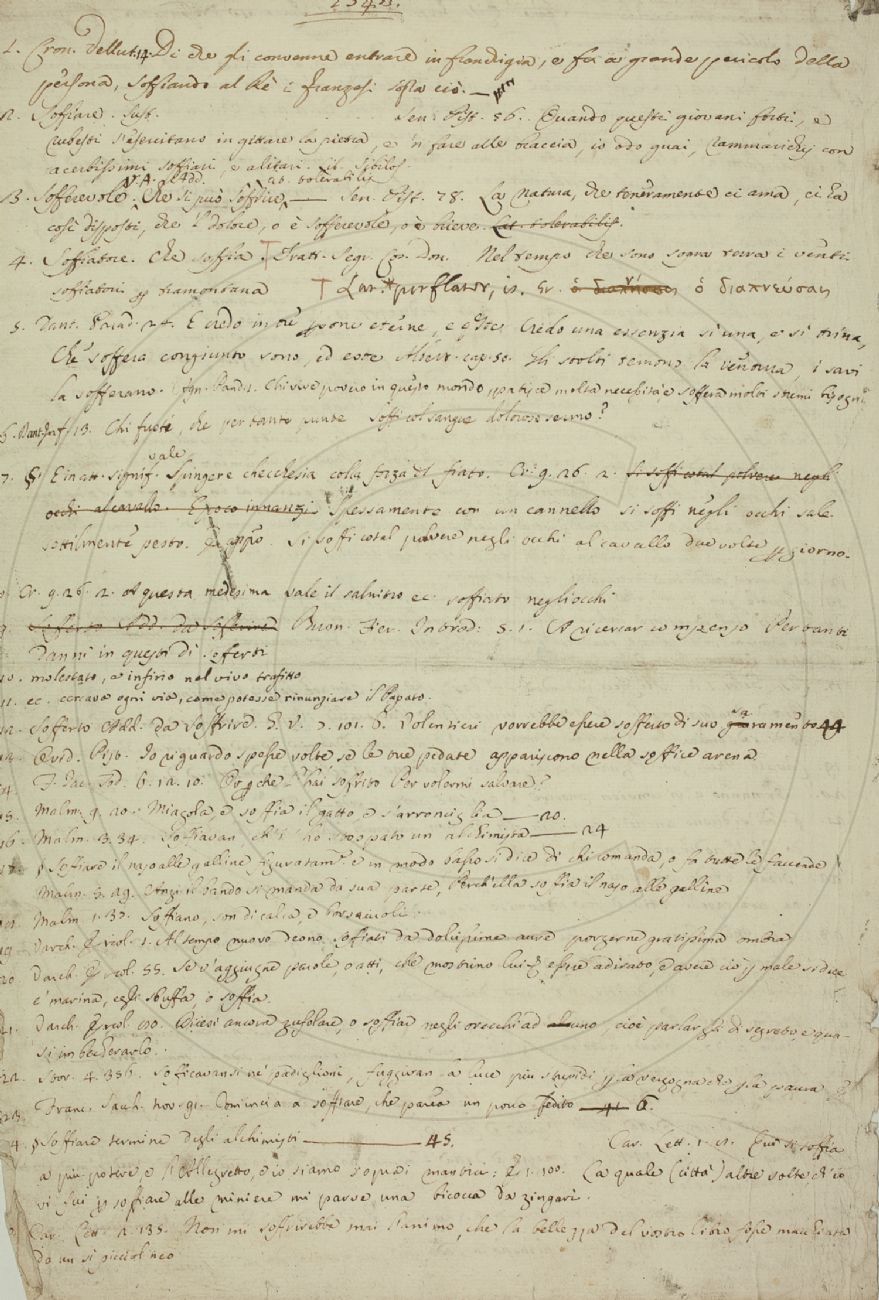 1. Cron. Vellut. 14. Di che gli convenne entrare in franchigia, e fu a grande pericolo della
persona, soffiando al Rè i Franzesi sopra ciò. —
2. Soffiare. Sust. Sen. Pist. 56. Quando questi giovani forti, e
rubesti s'esercitano in gittare la pietra, e 'n fare alle braccia, io odo guai, rammarichij con
acerbissimi soffiari, e alitari. Lat. sibilos.
V. A. Add. Lat. tolerabilis
3. Sofferevole. Che si può soffrire, — Sen. Pist. 78. La Natura, che teneramente ci ama, ci ha
così disposti, che 'l dolore, o è sofferevole, o è brieve. Lat. tolerabilis.
4. Soffiatore. Che soffia. † Tratt. Segr. Cos. Don. Nel tempo che sono sopra terra i venti
soffiatori p tramontana † Lat. perflator, is. Gr. ὁ διαπνεύσας
5. Dant. Parad. 24. E credo in tre persone eterne, e queste Credo una essenzia si una, e si trina,
Che soffera congiunto sono, ed este Albert. cap. 50. Gli stolti temono la ventura, i savi
la sofferano. Agn. Pand. Chi vive povero in questo mondo patisce molta necessità e soffera molti stremi bisogni
6. Dant. Inf. 13. Chi fusti, che per tante punte soffi col sangue doloroso sermo?
vale
7. § E in att. signif. Spingere checchesia colla forza del fiato. Cr. 9. 26. 2. Si soffi cotal polvere negli
occhi al cavallo. E poco innanzi Spessamente con un cannello si soffi negli occhi sale
sottilmente pesto. E appo. Si soffi cotal polvere negli occhi al cavallo due volte p giorno.
Cr. 9. 26. 2. A questa medesima vale il salnitro ec. soffiato negli occhi
9. Sofferto Add. da Sofferire Buon. Fier. Introd. 5. 1. A ricercar compenso Per tanti
Danni in questi dì sofferti
10. molestato, e infino nel vivo trafitto
11. ec. cercava ogni via, come potesse rinunziare il Papato.
12. Sofferto Add. da Soffrire. G. V. 7. 101. 6. Volentieri vorrebbe essere sofferto di suo saramento 44
13. Ovid. Pist. Io riguardo spesse volte se le tue pedate appariscono nella soffice arena
14. F. Jac. Tod. 6. 12. 10. Poi che l'hai soffrito Per volermi salvare?
15. Malm. 9. 20. Miagola, e soffia il gatto, e s'arronciglia — 20.
16. Malm. 3. 34. Soffiavan ch'i' ho stoppato un'alchimista — 24
17. § Soffiare il naso alle galline figuratam. e in modo basso si dice di chi comanda, o fa tutte le faccende
Malm. 3. 29. Anzi il bando si manda da sua parte, Perch'ella soffia il naso alle galline
18. Malm. 1. 37. Soffiano, son di calca, e borsaiuoli.
19. Varch. Ercol. 1. Al tempo nuovo deono, soffiati da dolcissime aure porgerne gratissima ombra
20. Varch. Ercol. 55. Se v'aggiugne parole, o atti, che mostrino lui essere adirato, e avere ciò p male si dice
e' marina, egli sbuffa, o soffia.
21. Varch. Ercol. Dicesi ancora zufolare, o soffiar negli orecchi ad uno, cioè parlargli di segreto, e qua-
si imbecherarlo.
22. Stor. 4. 336. Sofficavansi ne' padiglioni, fuggivan la luce più stupidi p la vergogna che p la paura
23. Franc. Sacch. nov. 91. Comincia a soffiare, che parea un poco fedito — 6.
§ Soffiare termine degli alchimisti — 45. Car. Lett. 1. Qui si soffia
a più potere, e l'Allegretto, e io siamo sopra i mantici: E 1. 100. La quale (città) altre volte ch'io
vi fui p soffiare alle miniere mi parve una bicocca da zingari.
Car. Lett. 2. 135. Non mi soffrirebbe mai l'animo, che la bellezza del vostro libro fosse macchiata
da un si picciol neo